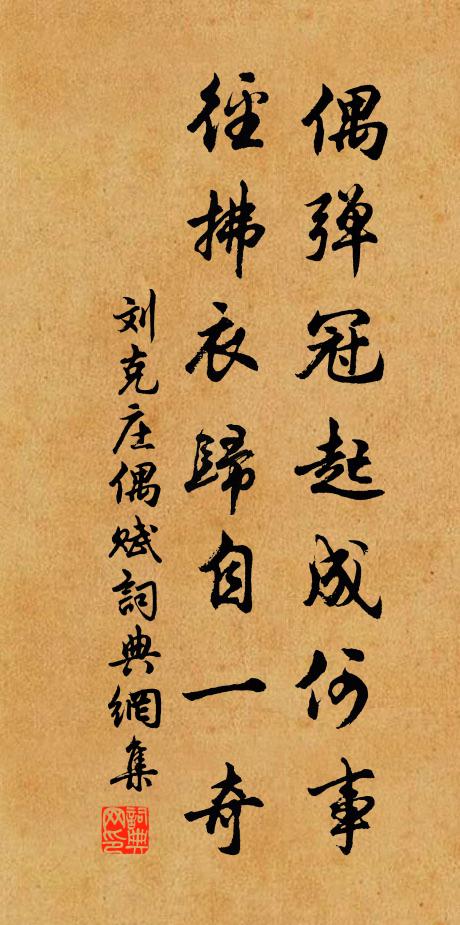 偶弹冠起成何事
径拂衣歸自一奇
刘克庄偶赋詞典網集
詞典網印